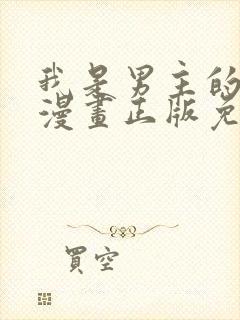 我是男主的
漫畫正版免
買空